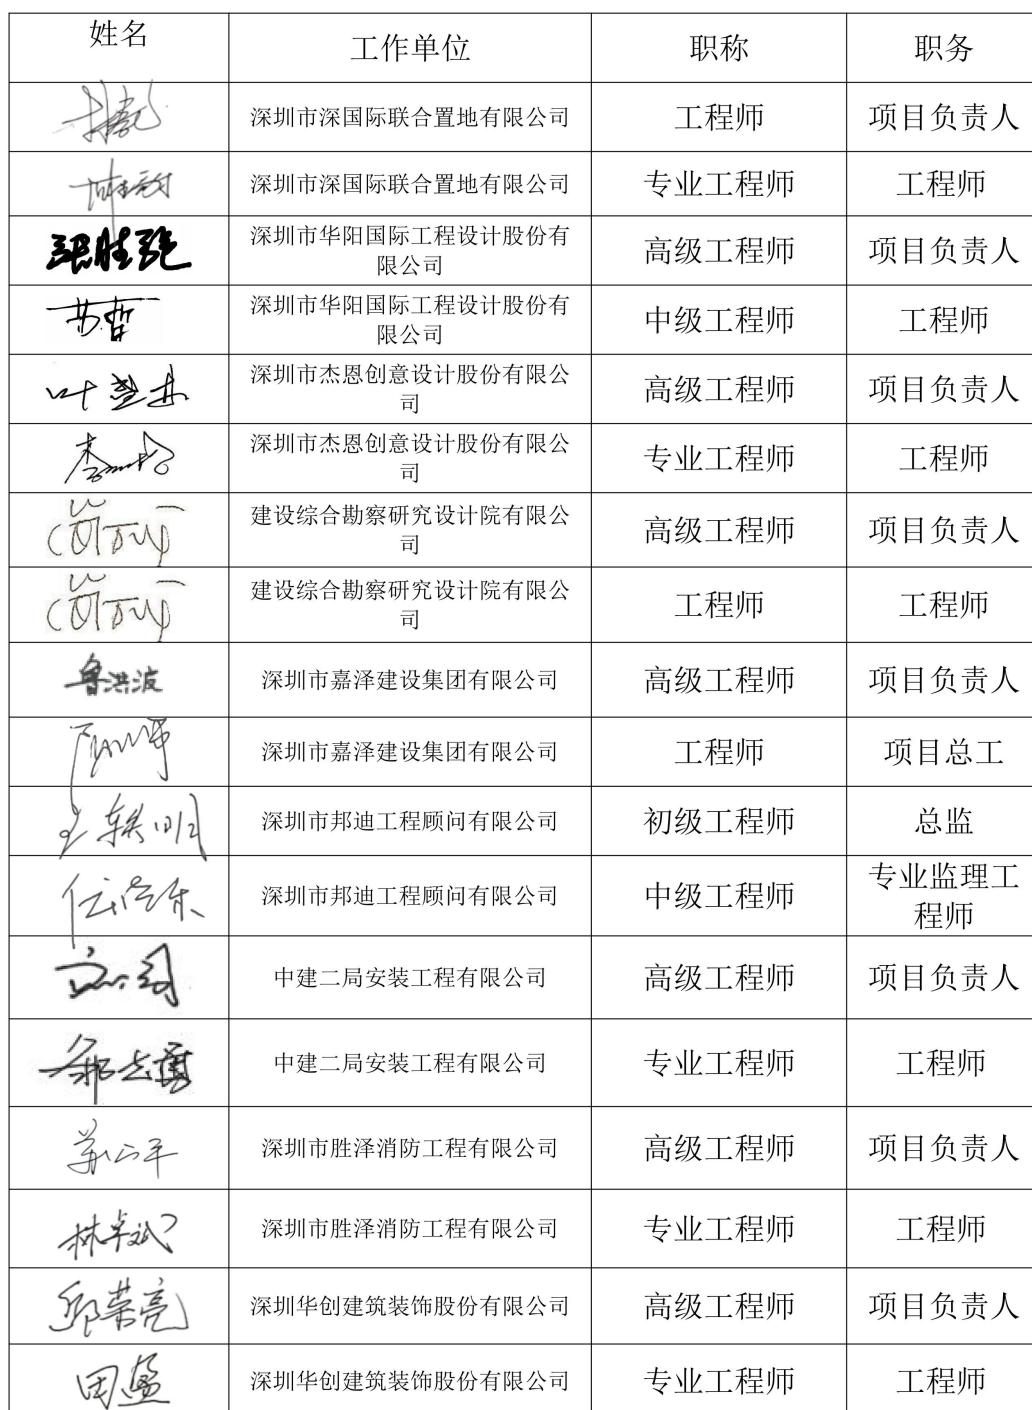 姓名 工作单位 职称 职务
深圳市深国际联合置地有限公司 工程师 项目负责人
深圳市深国际联合置地有限公司 专业工程师 工程师
深圳市华阳国际工程设计股份有
限公司 高级工程师 项目负责人
苏哲 深圳市华阳国际工程设计股份有
限公司 中级工程师 工程师
深圳市杰恩创意设计股份有限公
司 高级工程师 项目负责人
深圳市杰恩创意设计股份有限公
司 专业工程师 工程师
建设综合勘察研究设计院有限公
司 高级工程师 项目负责人
建设综合勘察研究设计院有限公
司 工程师 工程师
鲁洪波 深圳市嘉泽建设集团有限公司 高级工程师 项目负责人
深圳市嘉泽建设集团有限公司 工程师 项目总工
深圳市邦迪工程顾问有限公司 初级工程师 总监
深圳市邦迪工程顾问有限公司 中级工程师 专业监理工
程师
中建二局安装工程有限公司 高级工程师 项目负责人
中建二局安装工程有限公司 专业工程师 工程师
深圳市胜泽消防工程有限公司 高级工程师 项目负责人
林卓斌 深圳市胜泽消防工程有限公司 专业工程师 工程师
邱荣亮 深圳华创建筑装饰股份有限公司 高级工程师 项目负责人
周盈 深圳华创建筑装饰股份有限公司 专业工程师 工程师